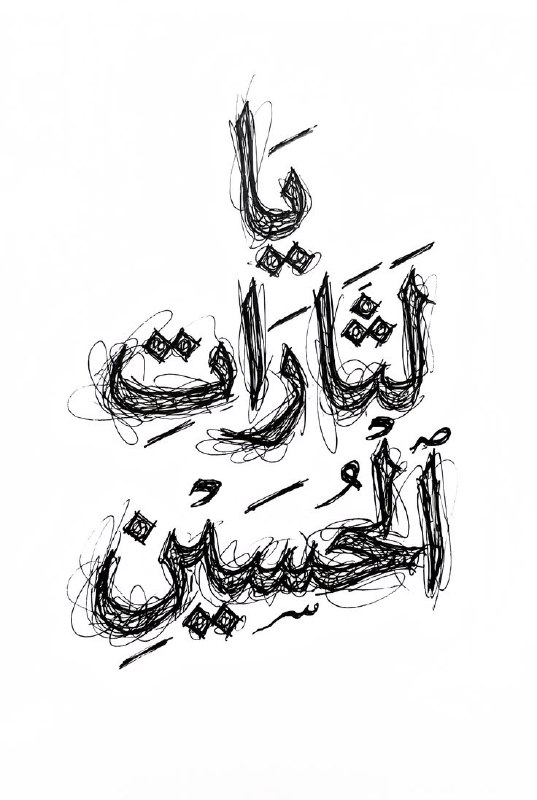 يَا
لَثَارَاتِ
ٱلْحُسَيْنِ